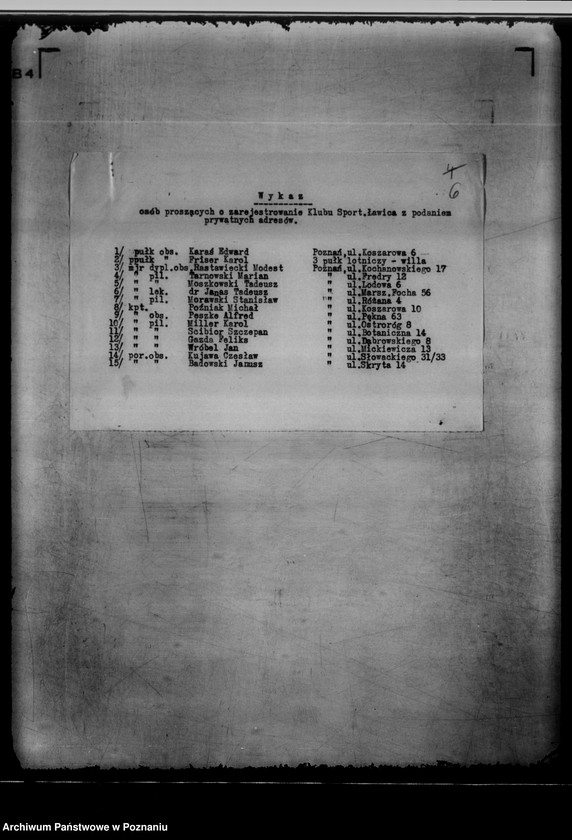 84
4
6
Wykaz
osób proszących o zarejestrowanie Klubu Sport.Ławica z podaniem
prywatnych adresów.
1/ pułk obs. Karaś Edward Poznań,ul.Koszarowa 6
2/ ppułk " Friser Karol 3 pułk lotniczy - willa
3/ mjr dypl.obs.Rastawiecki Modest Poznań,ul.Kochanowskiego 17
4/ " pil. Tarnowski Marian " ul.Fredry 12
5/ " " Moszkowski Tadeusz " ul.Lodowa 6
6/ " lek. dr Janas Tadeusz " ul.Marsz.Focha 56
7/ " pil. Morawski Stanisław " ul.Różana 4
8/ kpt. " Poźniak Michał " ul.Koszarowa 10
9/ " obs. Peszke Alfred " ul.Pękna 63
10/ " pil. Miller Karol " ul.Ostroróg 8
11/ " " Scibior Szczepan " ul.Botaniczna 14
12/ " " Gazda Feliks " ul.Dąbrowskiego 8
13/ " " Wróbel Jan " ul.Mickiewicza 13
14/ por.obs. Kujawa Czesław " ul.Słowackiego 31/33
15/ " " Badowski Janusz " ul.Skryta 14
Archiwum Państwowe w Poznaniu